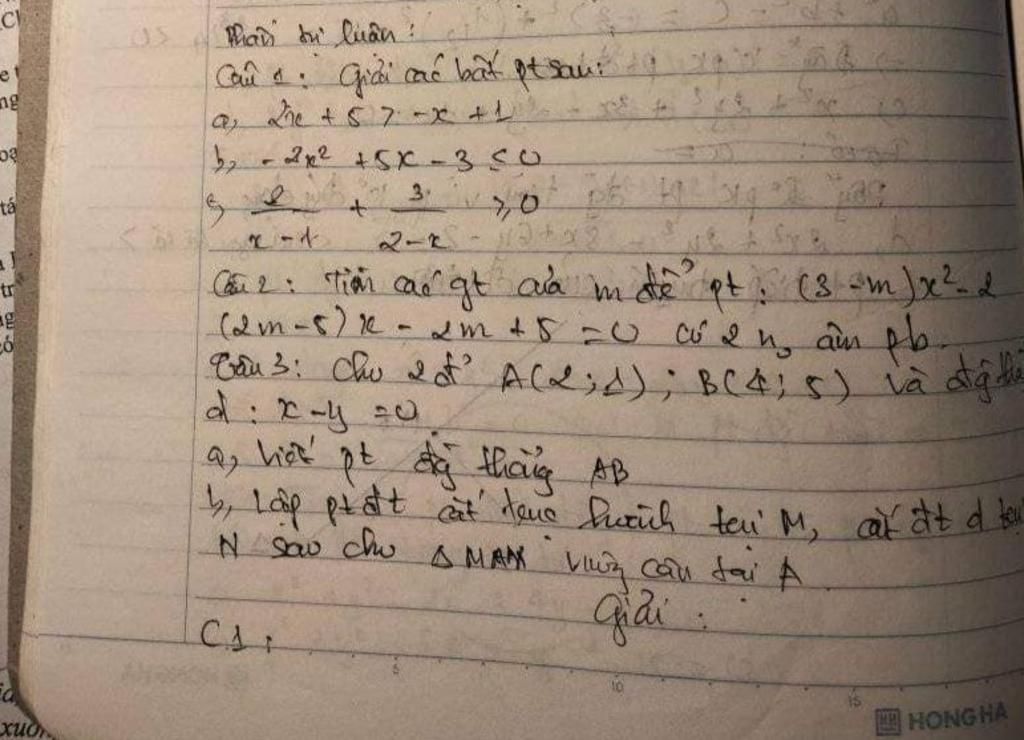 Phần tự luận:
Câu 1: Giải các bất pt sau:
a, 2x + 5 > -x + 1
b, -2x² + 5x - 3 ≤ 0
c, 2/(x-1) + 3/(2-x) ≥ 0
Câu 2: Tìm các gt của m để pt: (3-m)x² - 2
(2m-5)x - 2m + 5 = 0 có 2 n₀ âm pb.
Câu 3: Cho 2 đ' A(2;1); B(4;5) và đg
d: x-y=0
a, Viết pt đg thẳng AB
b, Lập pt đt cắt trục hoành tại M, cắt đt d tại
N sao cho Δ MAN vuông cân tại A
Giải:
C1:
5 10 15
HONG HA